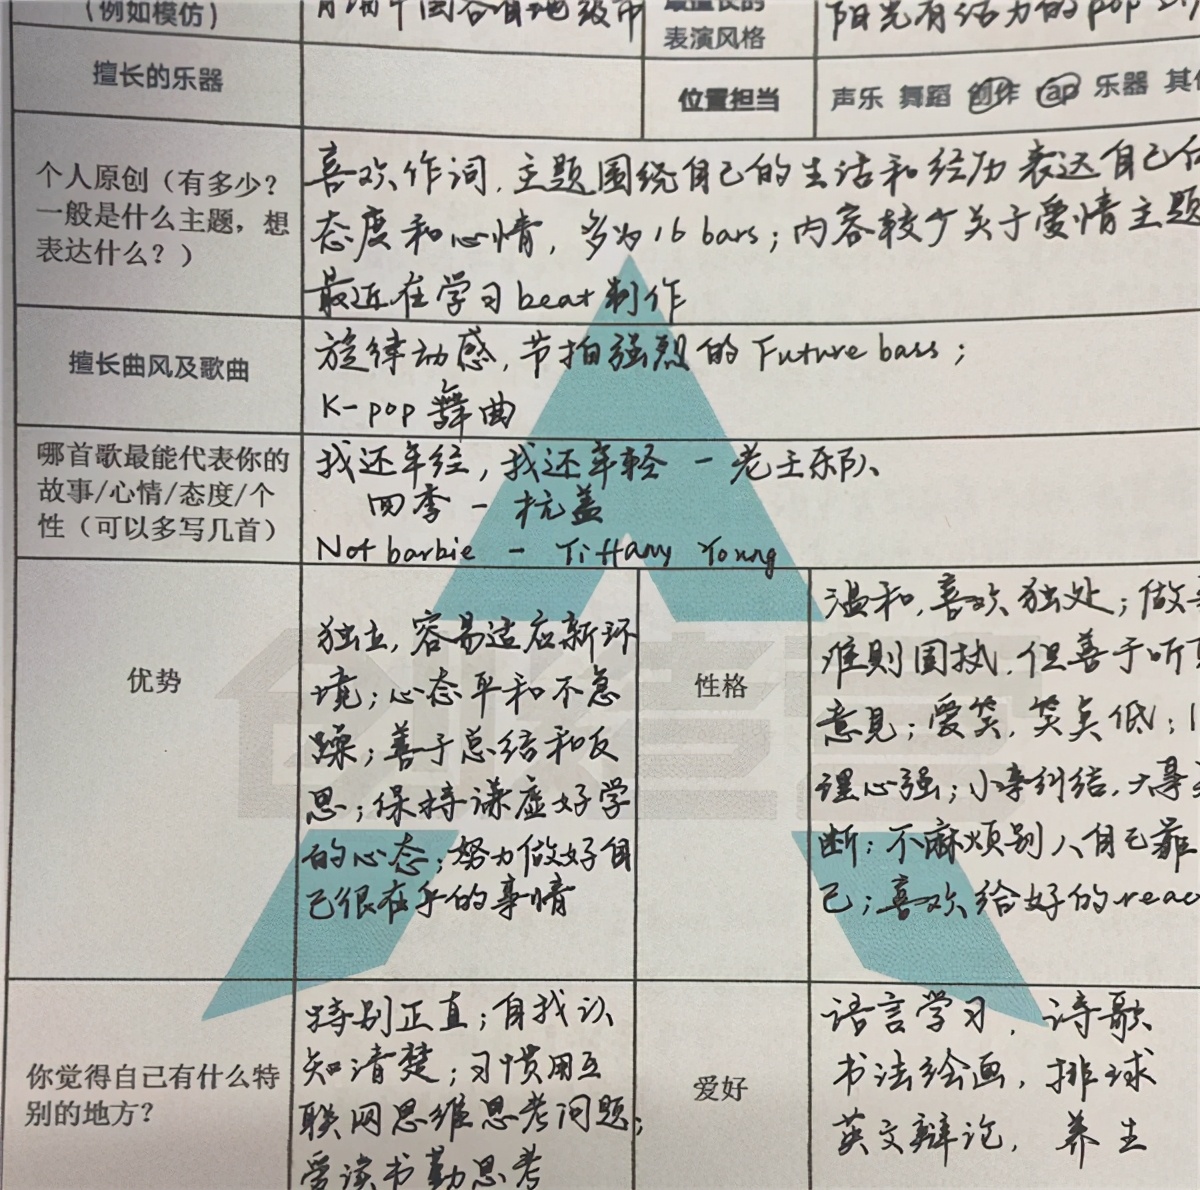 （例如模仿）
背诵中国各省地级市
最擅长的
表演风格
阳光有活力的pop
擅长的乐器
位置担当
声乐 舞蹈 创作 rap 乐器 其
个人原创（有多少？
一般是什么主题，想
表达什么？）
喜欢作词，主题围绕自己的生活和经历表达自己
态度和心情，多为16 bars；内容较少关于爱情主题
最近在学习beat制作
擅长曲风及歌曲
旋律动感，节拍强烈的Future bass；
K-pop 舞曲
哪首歌最能代表你的
故事/心情/态度/个
性（可以多写几首）
我还年经，我还年轻 - 老王乐队
四季 - 杭盖
Not barbie - Tiffany Young
优势
独立，容易适应新环
境；心态平和不急
躁；善于总结和反
思；保持谦虚好学
的心态；努力做好自
己很在乎的事情
性格
温和，喜欢独处；做
准则固执，但善于听
意见；爱笑，笑点低；
理心强；小事纠结，大事
断；不麻烦别人自己靠
己；喜欢给好的reac
你觉得自己有什么特
别的地方？
特别正直；自我认
知清楚；习惯用互
联网思维思考问题；
爱读书勤思考
爱好
语言学习，诗歌
书法绘画，排球
英文辩论，养生
创造营